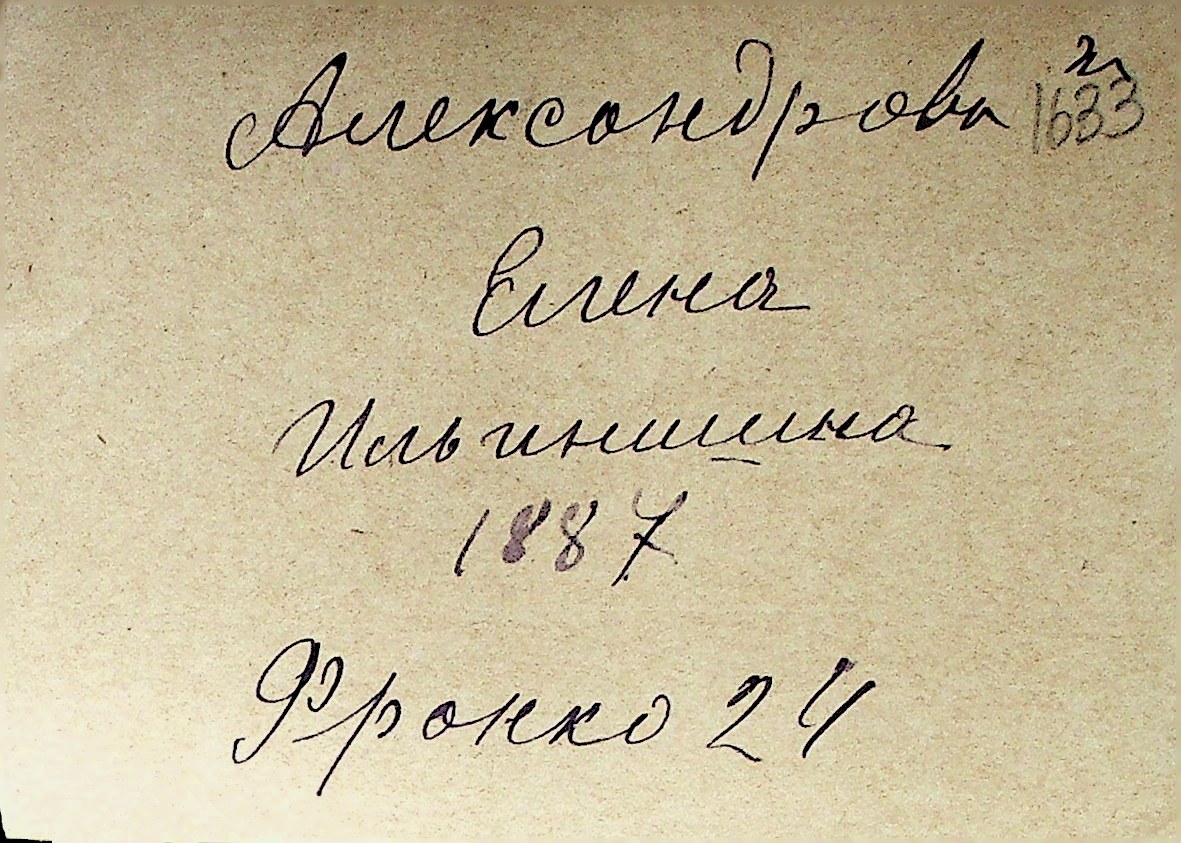 Александрова 1633
Елена
Ильинишна
1887
Франко 24